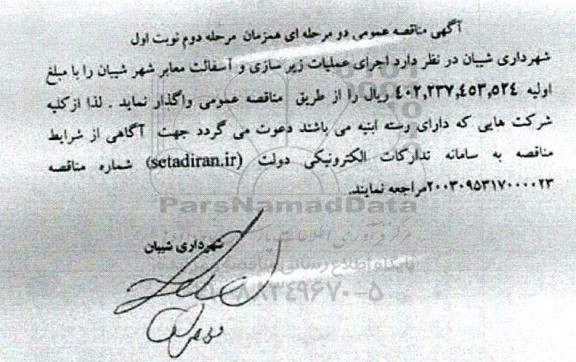 آگهی مناقصه عمومی دو مرحله ای همزمان مرحله دوم نوبت اول
شهرداری شیبان در نظر دارد اجرای عملیات زیر سازی و آسفالت معابر شهر شیبان را با مبلغ
اولیه ۴۰۲,۲۳۷,۴۵۳,۵۲۴ ریال را از طریق مناقصه عمومی واگذار نماید . لذا ازکلیه
شرکت هایی که دارای رسته ابنیه می باشند دعوت می گردد جهت آگاهی از شرایط
مناقصه به سامانه تدارکات الکترونیکی دولت (setadiran.ir) شماره مناقصه
۲۰۰۳۰۹۵۳۱۷۰۰۰۰۲۳مراجعه نمایند.
ParsNamadData
شهرداری شیبان
پایگاه اطلاع رسانی
۸۸۳۴۹۶۷۰-۵